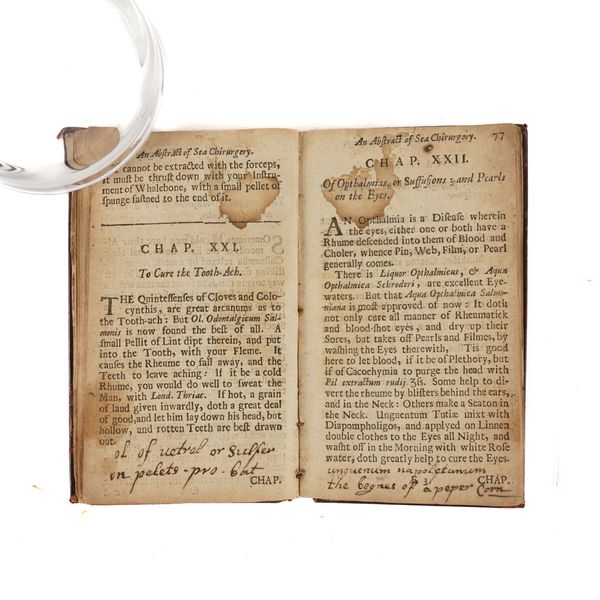 An Abstract of Sea Chirurgery.
cannot be extracted with the forceps,
it must be thrust down with your Instru-
ment of Whalebone, with a small pellet of
spunge fastned to the end of it.
CHAP. XXI.
To Cure the Tooth-Ach.
THE Quintessenses of Cloves and Colo-
cynthis, are great arcanums as to
the Tooth-ach: But Ol. Odontalgicum Sal-
monis is now found the best of all. A
small Pellit of Lint dipt therein, and put
into the Tooth, with your Fleme. It
causes the Rheume to fall away, and the
Teeth to leave aching: If it be a cold
Rhume, you would do well to sweat the
Man, with Lond. Thriac. If hot, a grain
of laud given inwardly, doth a great deal
of good, and let him lay down his head, but
hollow, and rotten Teeth are best drawn
out.
ol of vetrel or Sulfer
on pelets - pro - bat
CHAP.
An Abstract of Sea Chirurgery. 77
CHAP. XXII.
Of Opthalmias, or Suffusions; and Pearls
on the Eyes.
AN Opthalmia is a Disease wherein
the eyes, either one or both have a
Rhume descended into them of Blood and
Choler, whence Pin, Web, Film, or Pearl
generally comes.
There is Liquor Opthalmicus, & Aqua
Opthalmica Schroderi, are excellent Eye-
waters. But that Aqua Opthalmica Salmo-
niana is most approved of now: It doth
not only cure all manner of Rheumatick
and blood-shot eyes, and dry up their
Sores, but takes off Pearls and Filmes, by
washing the Eyes therewith, 'Tis good
here to let blood, if it be of Plethory, but
if of Cacochymia to purge the head with
Pil extractum rudij ʒſs. Some help to di-
vert the rheume by blisters behind the ears,
and in the Neck: Others make a Seaton in
the Neck. Unguentum Tutiæ mixt with
Diapompholigos, and applyed on Linnen
double clothes to the Eyes all Night, and
washt off in the Morning with white Rose
water, doth greatly help to cure the Eyes.
unguenum napoletanum
the bognes of a peper Corn
CHAP.